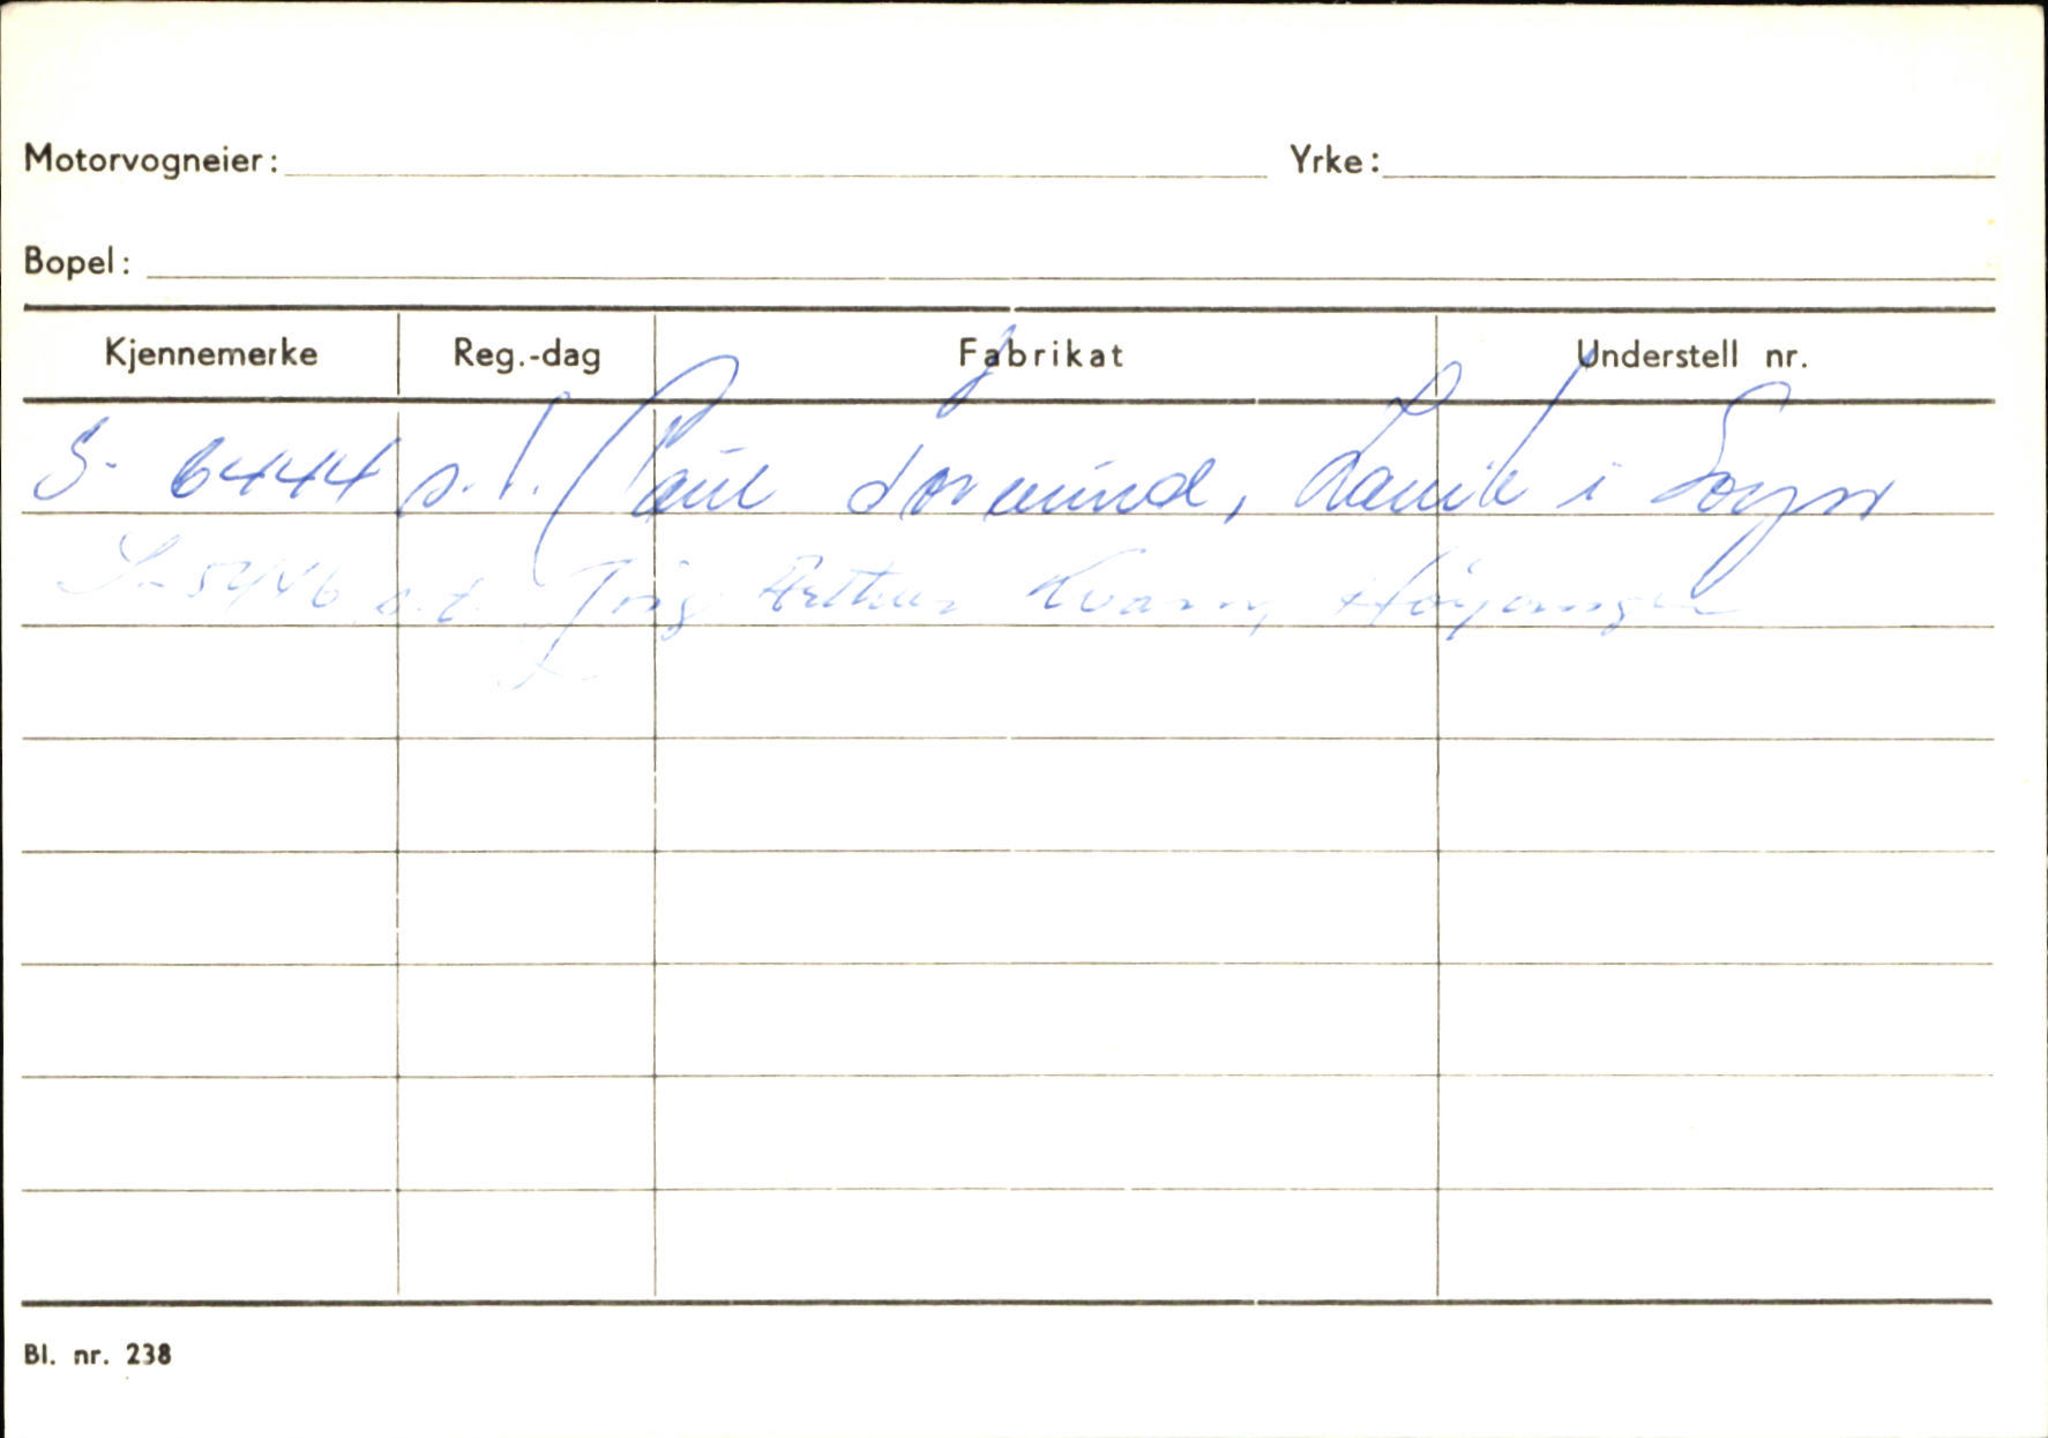 Motorvogneier: Yrke:
Bopel:
Kjennemerke Reg.-dag Fabrikat Understell nr.
S- 6444 s.t. Paul i Sogn
S- s.t. Arthur Kvam, Høyanger
Bl. nr. 238